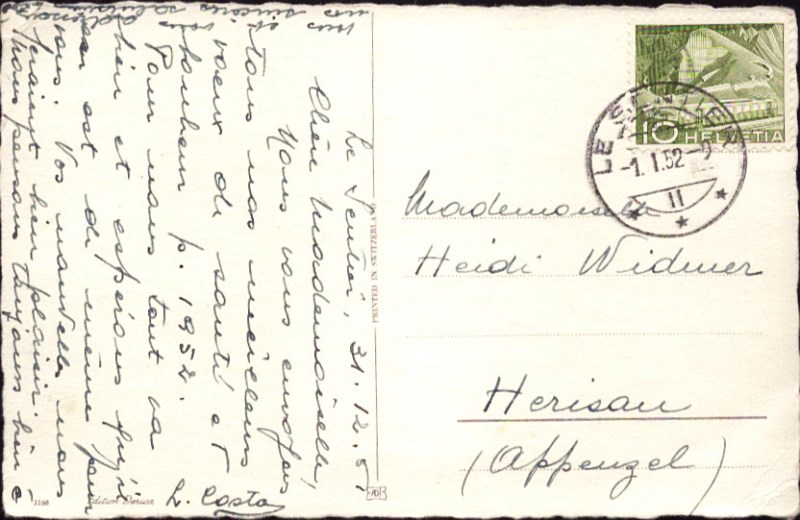 Le Sentier, 31.12.51
Chère Mademoiselle,
Nous vous envoyons
tous nos meilleurs
voeux de santé et
bonheur p. 1952.
Pour nous tout va
bien et espérons qu'il
en est de même pour
vous. Vos nouvelles nous
feraient bien plaisir.
Nous pensons toujours bien à
vous et
nos sincères salutations
L. Costa
PRINTED IN SWITZERLAND
1160
Edition Deriaz
10 HELVETIA
LE SENTIER
-1.I.52-9
II
Mademoiselle
Heidi Widmer
Herisau
(Appenzel)